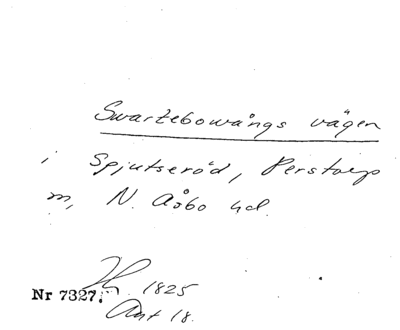 Swartebowångs vägen
i Spjutseröd, Perstorp
m, N. Åsbo hd.
1825
Nr 7327.
Ant 18.